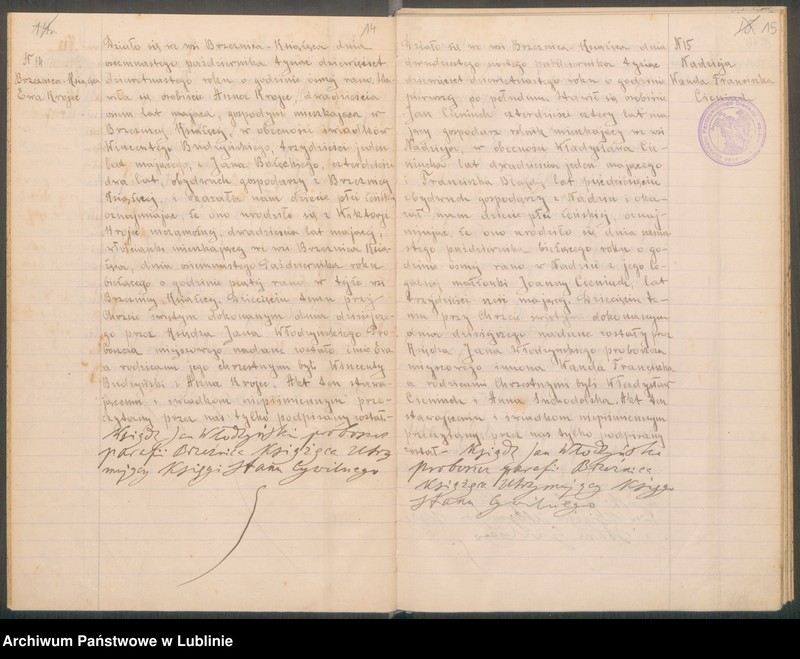 14
N 14
Brzeźnica-Książęca
Ewa Krojec
Działo się we wsi Brzeźnica-Książęca dnia
osiemnastego października tysiąc dziewięćset
dziewiętnastego roku o godzinie ósmej rano. Sta
wiła się osobiście Anna Krojec, dwadzieścia
osiem lat mająca, gospodyni mieszkająca w
Brzeźnicy Książęcej, w obecności świadków
Wincentego Budzyńskiego, trzydzieści jeden
lat mającego, i Jana, czterdzieści
dwa lat, obydwóch gospodarzy z Brzeźnicy
Książęcej, i okazała nam dziecię płci żeńskiej
oznajmiając, że ono urodziło się z Wiktorji
Krojec niezamężnej, dwadzieścia lat mającej,
włościanki mieszkającej we wsi Brzeźnica Ksią
żęca, dnia osiemnastego Października roku
bieżącego o godzinie piątej rano w tejże wsi
Brzeźnicy Książęcej. Dziecięciu temu przy
Chrzcie świętym dokonanym dnia dzisiejsze
go przez Księdza Jana Włodzyńskiego Pro
boszcza miejscowego nadane zostało imię Ewa
a rodzicami jego chrzestnymi byli Wincenty
Budzyński i Anna Krojec. Akt ten stawa
jącemu i świadkom niepiśmiennym prze
czytany przez nas tylko podpisany został.-
Ksiądz Jan Włodzyński proboszcz
parafii Brzeźnica Książęca Utrzy
mujący Księgi Stanu Cywilnego
15
N 15
Nadzieja
Wanda Franciszka
Cieniuch
Działo się we wsi Brzeźnica-Książęca dnia
dwudziestego szóstego października tysiąc
dziewięćset dziewiętnastego roku o godzinie
pierwszej po południu. Stawił się osobiście
Jan Cieniuch czterdzieści cztery lat ma
jący gospodarz rolnik mieszkający we wsi
Nadzieja, w obecności Władysława Cie
niucha lat dwadzieścia jeden mającego
i Franciszka lat pięćdziesiąt
obydwóch gospodarzy z Nadziei i oka
zał nam dziecię płci żeńskiej, oznaj
miając że ono urodziło się dnia
stego października bieżącego roku o go
dzinie ósmej rano w Nadziei z jego le
galnej małżonki Joanny Cieniuch, lat
trzydzieści sześć mającej. Dziecięciu te
mu przy Chrzcie świętym dokonanym
dnia dzisiejszego nadane zostały przez
Księdza Jana Włodzyńskiego proboszcza
miejscowego imiona Wanda Franciszka
a rodzicami Chrzestnymi byli Władysław
Cieniuch i Anna Suchodolska. Akt ten
stawającemu i świadkom niepiśmiennym
przeczytany przez nas tylko podpisany
został- Ksiądz Jan Włodzyński
proboszcz parafii Brzeźnica
Książęca Utrzymujący Księgi
Stanu Cywilnego
Archiwum Państwowe w Lublinie